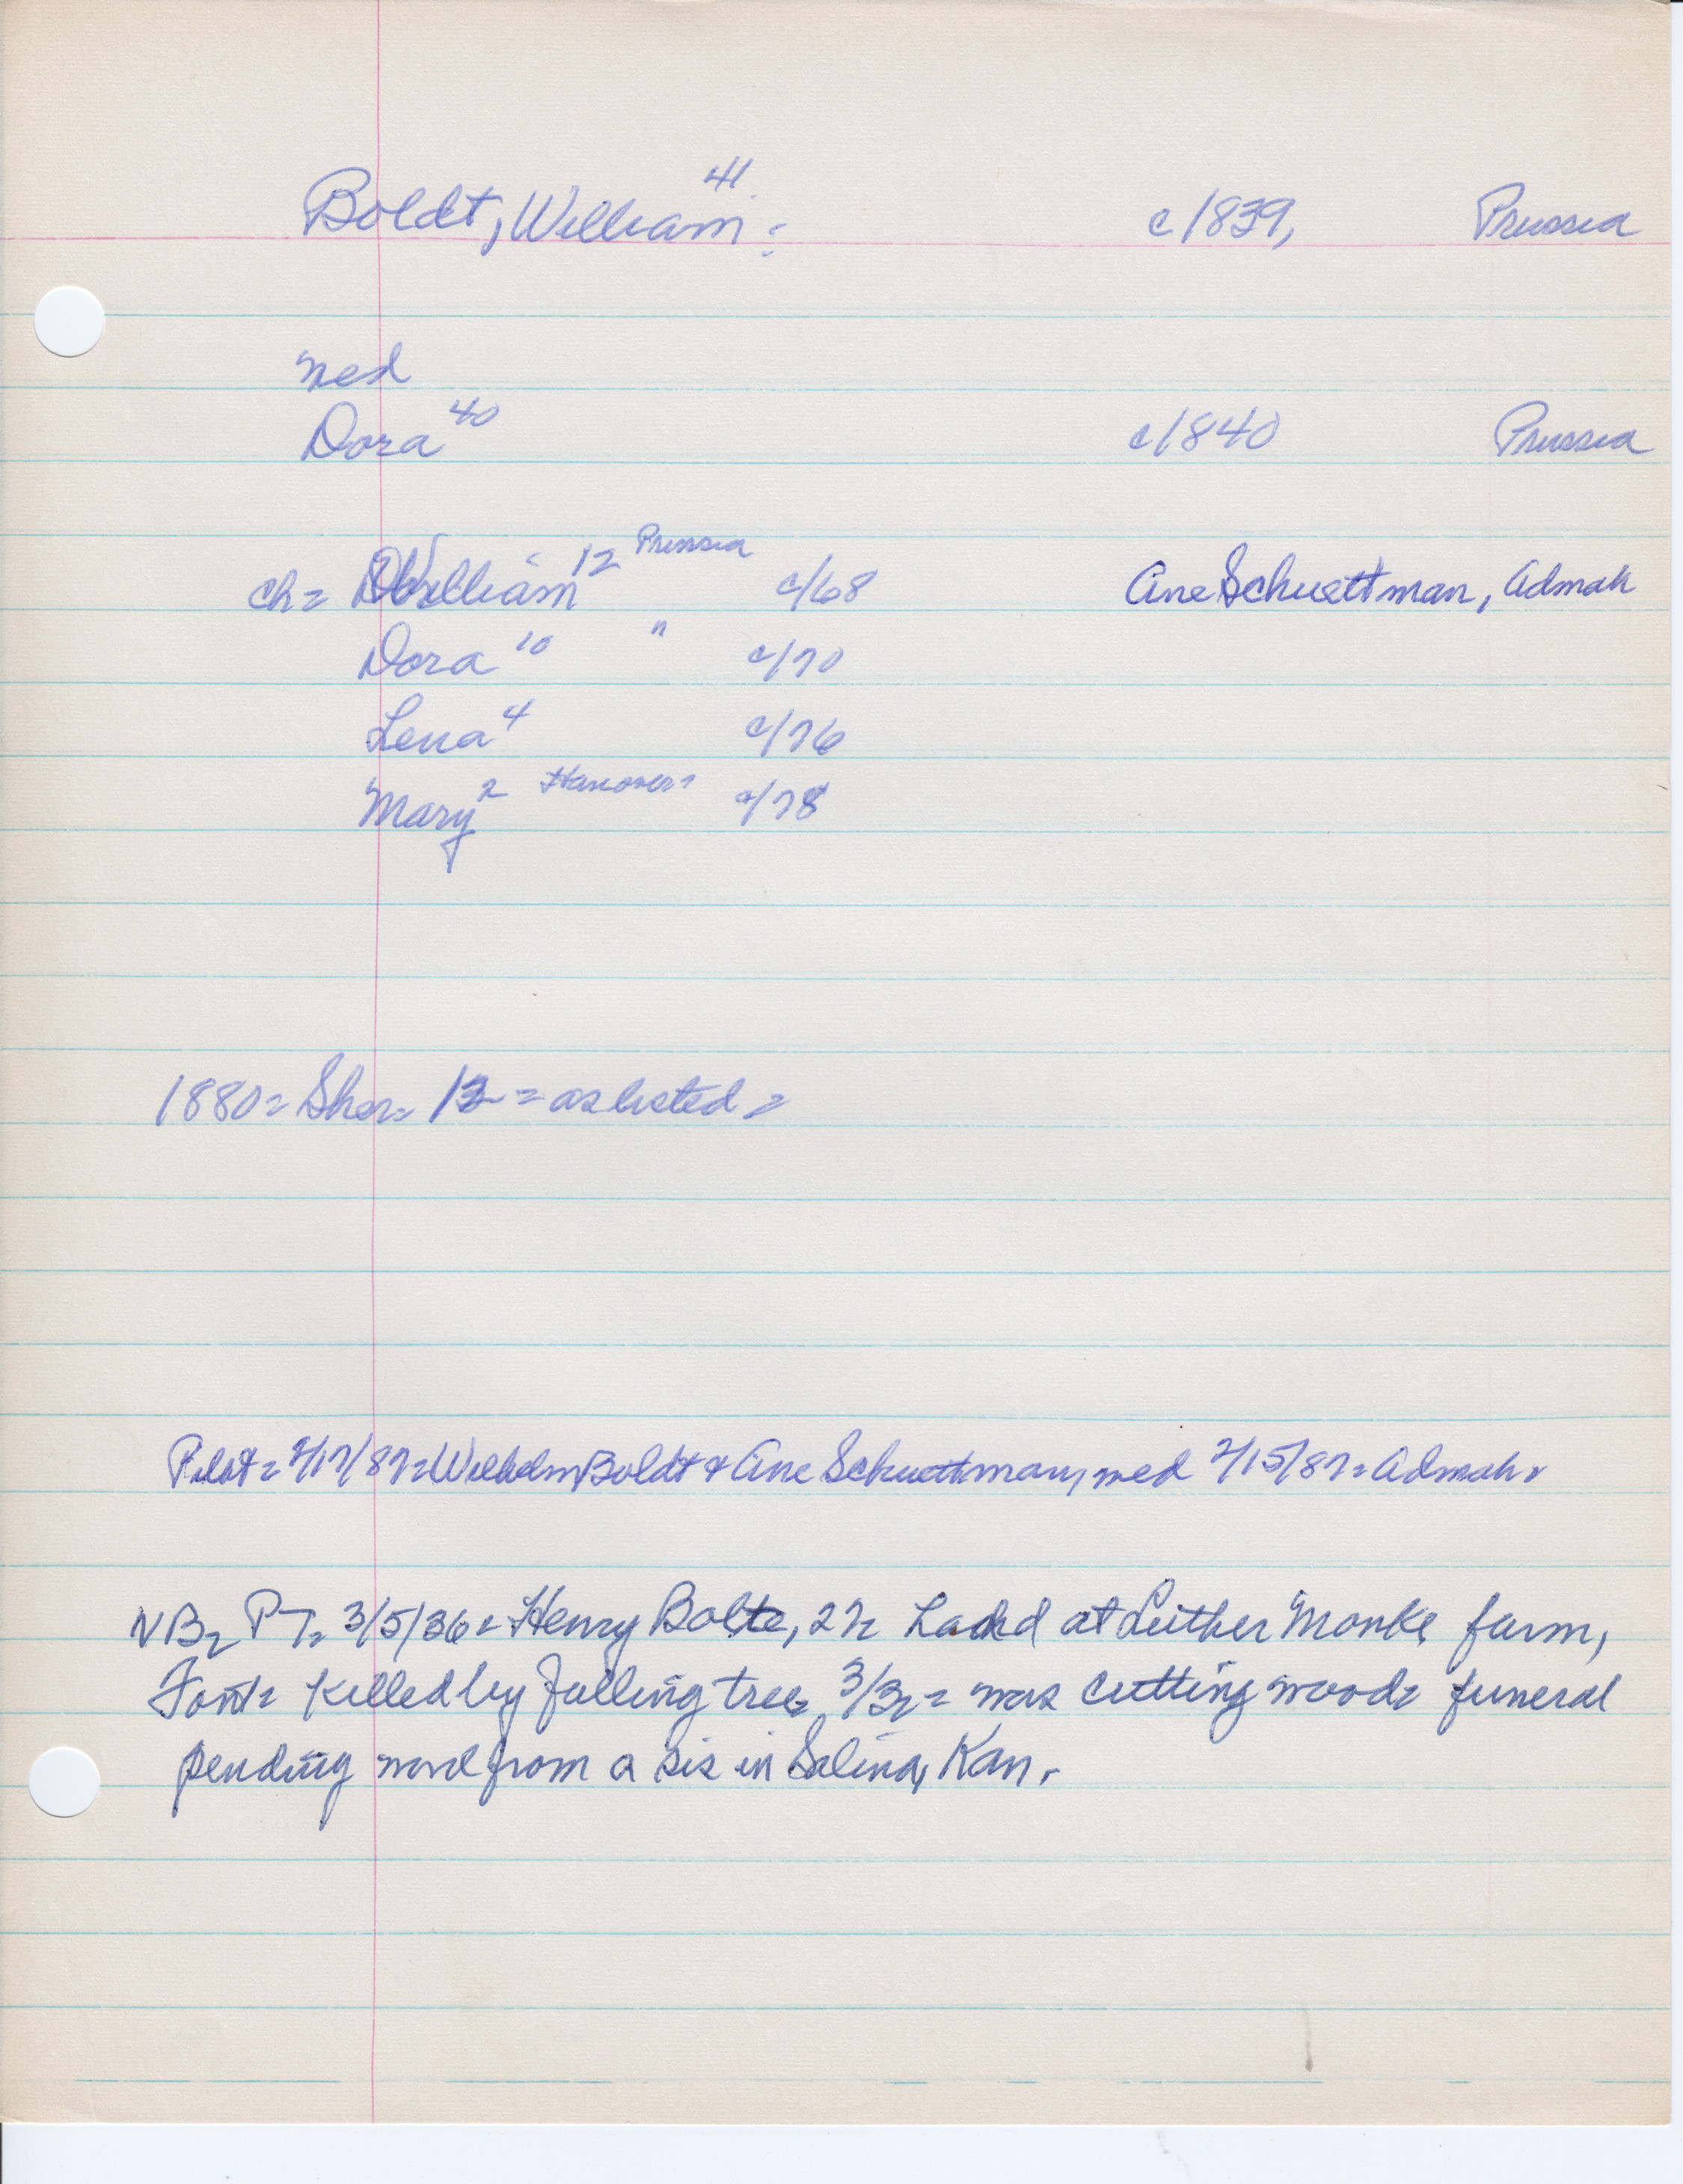 Boldt, William 41 = c/1839, Prussia
med
Dora 40 c/1840 Prussia
ch = William 12 Prussia c/68 Ane Schuettman, Admah
Dora 10 " c/70
Lena 4 c/76
Mary 2 Hanover = c/78
1880 = Sher = 12 = as listed =
Pilot = 2/17/87 = Wilhelm Boldt & Ane Schuettman, med 2/15/87 = Admah =
NB = PT = 3/5/36 = Henry Bolte, 27 = hand at Luther Monke farm,
Font = killed by falling tree 3/3 = was cutting wood = funeral
pending word from a sis in Salina, Kan.